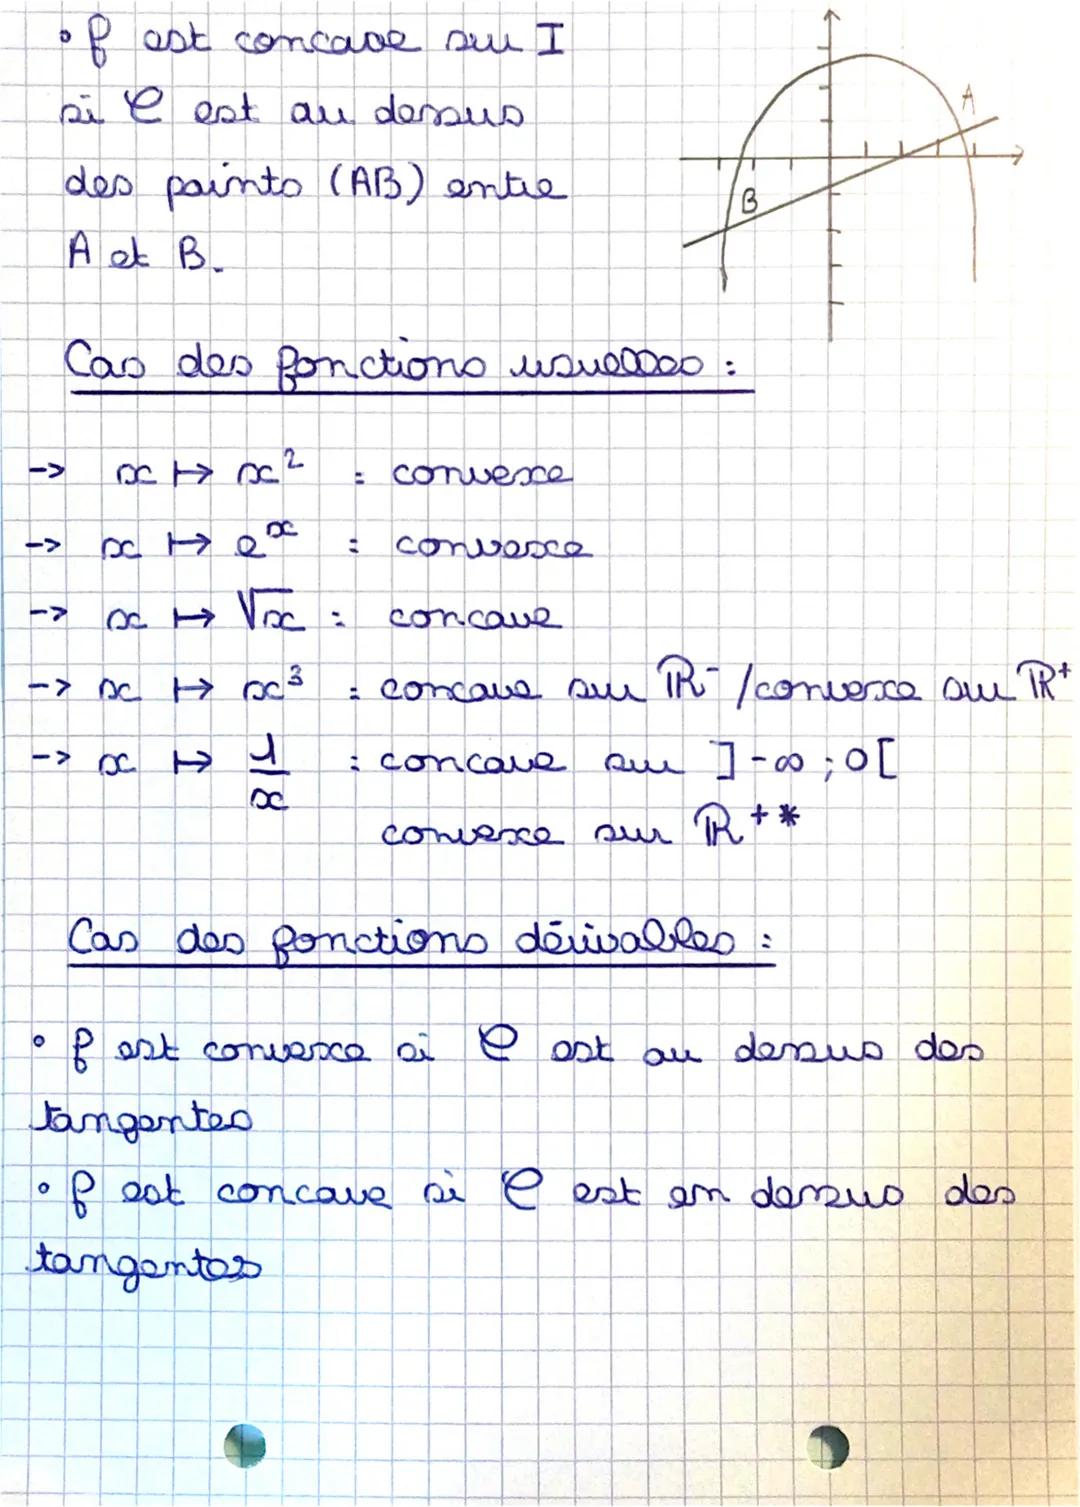 • f est concave sur I
si C est au dessus
des points (AB) entre
A et B.
A
B
Cas des fonctions usuelles :
-> x ↦ x² : convexe
-> x ↦ eˣ : convexe
-> x ↦ √x : concave
-> x ↦ x³ : concave sur ℝ⁻ / convexe sur ℝ⁺
-> x ↦ 1/x : concave sur ]-∞ ; 0[
convexe sur ℝ⁺*
Cas des fonctions dérivables :
• f est convexe si C est au dessus des
tangentes
• f est concave si C est en dessus des
tangentes